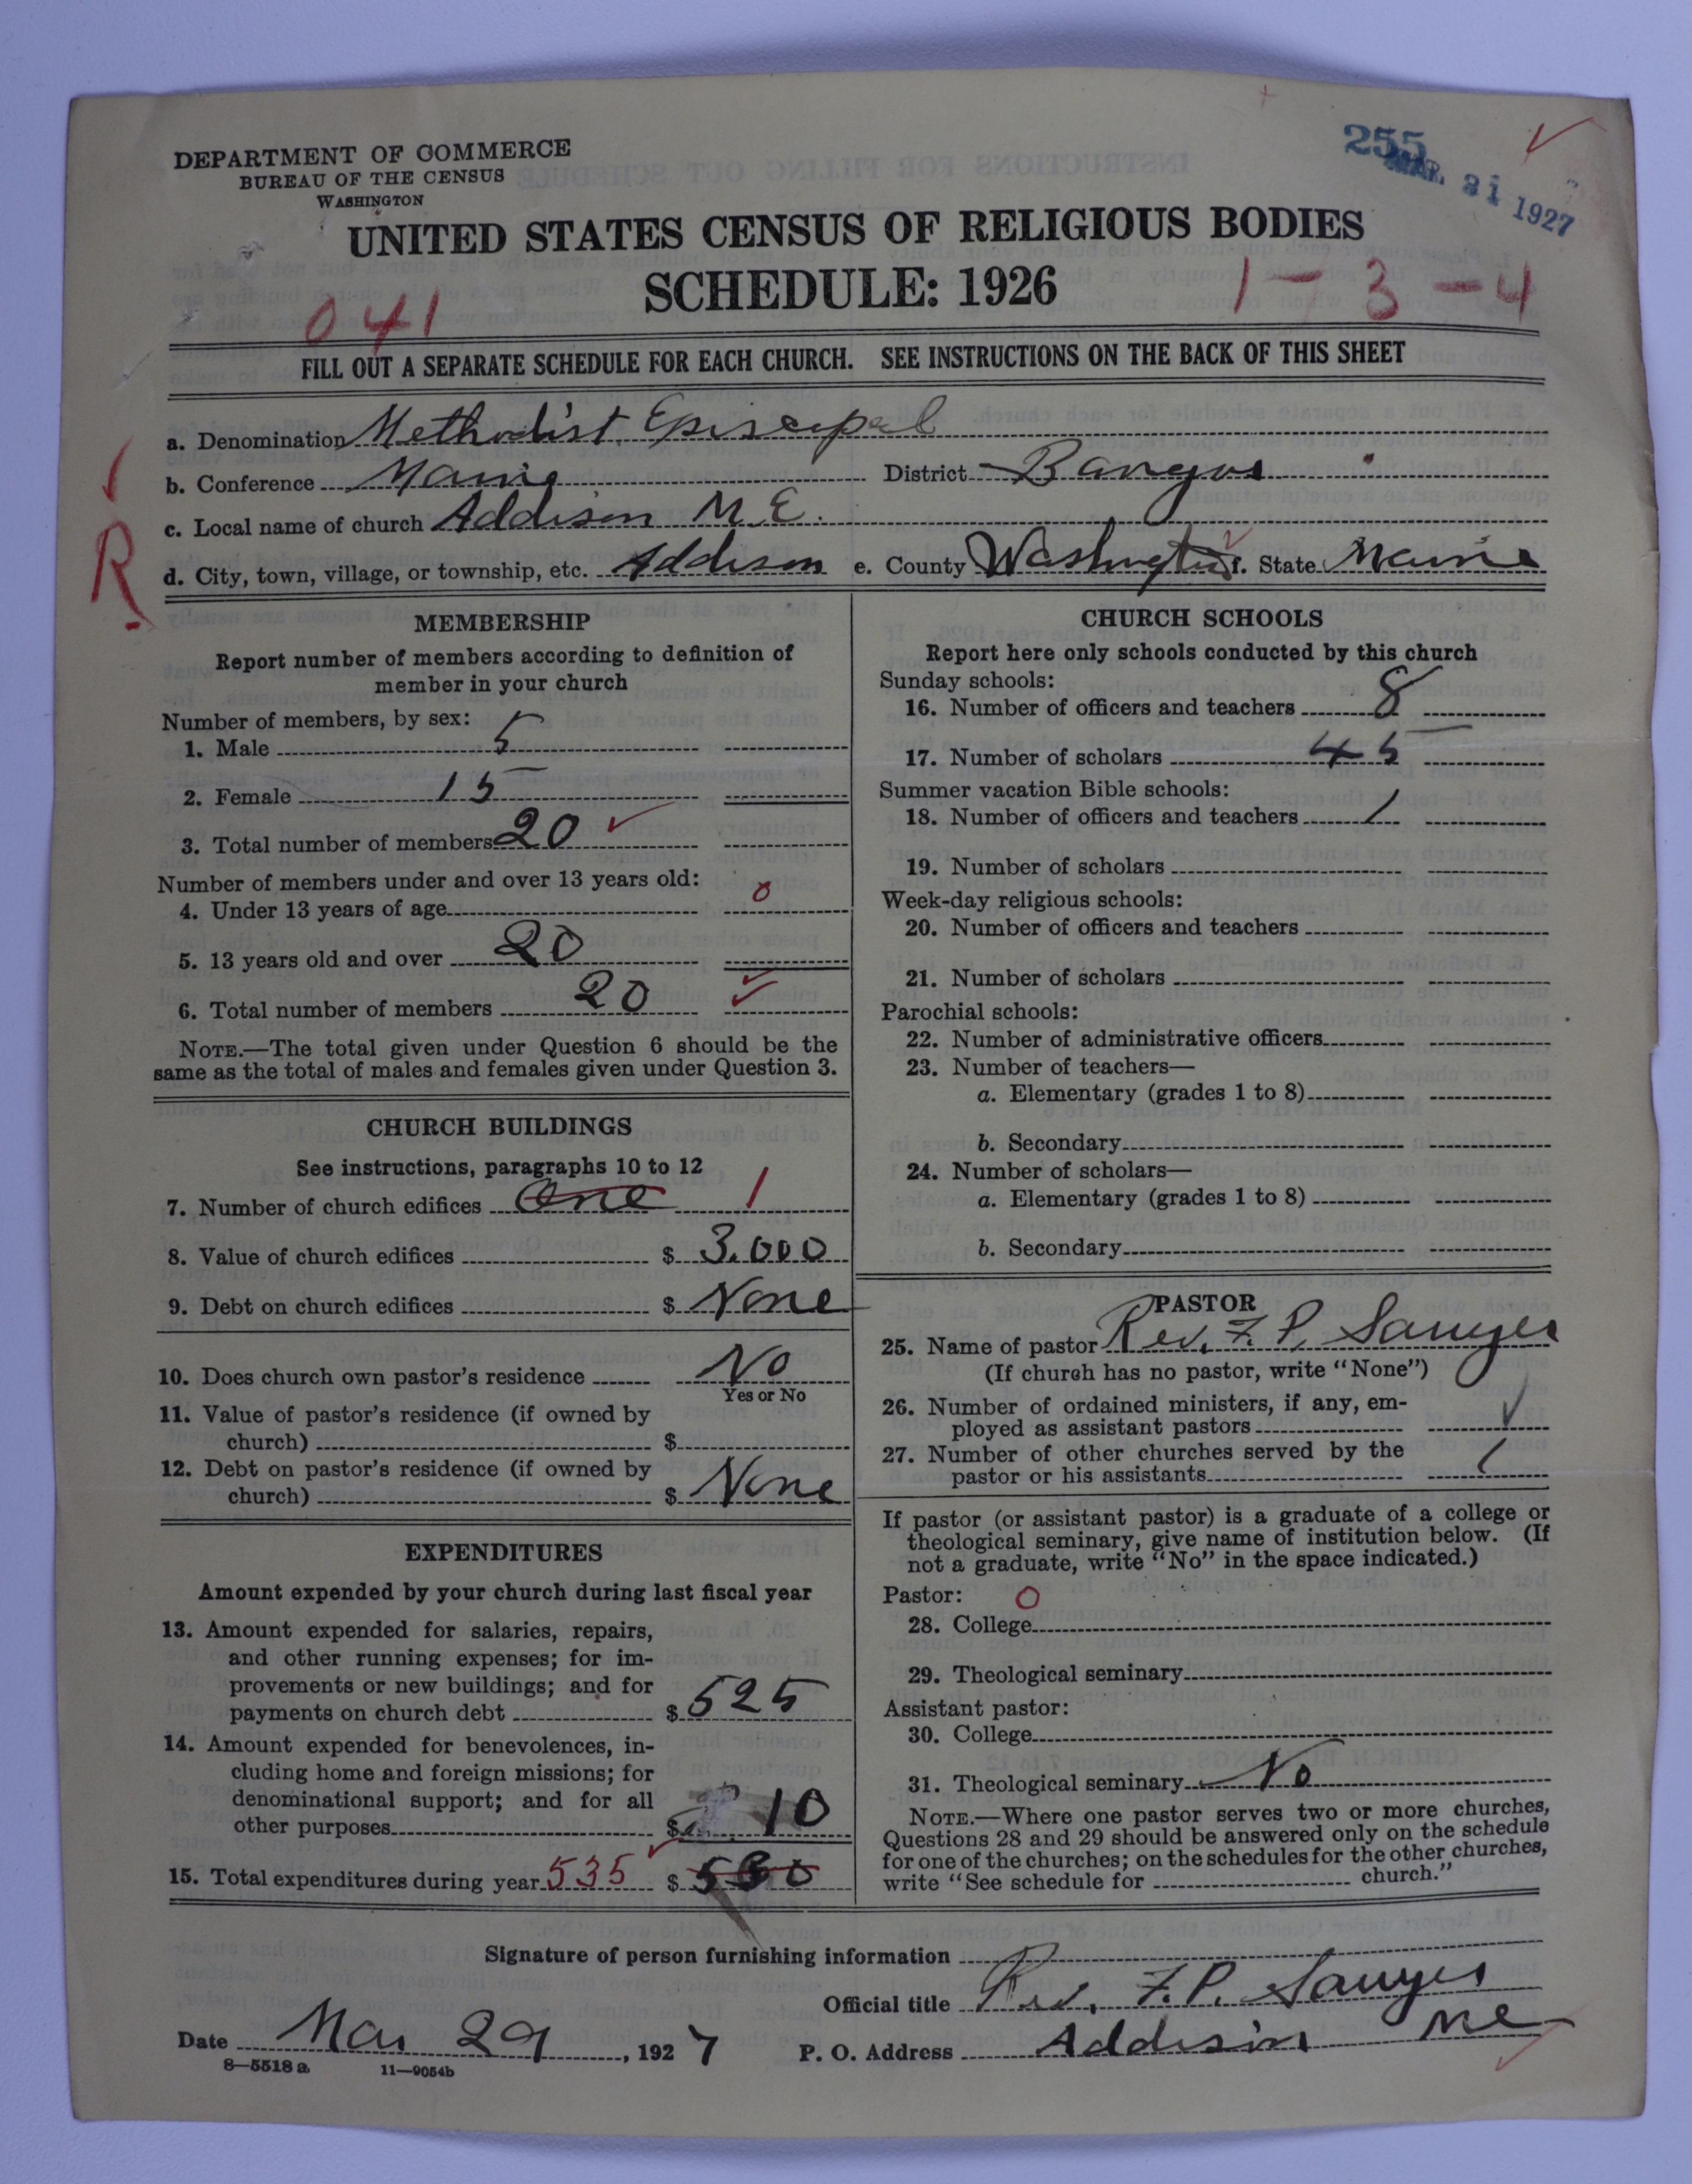 255
MAR. 31 1927
DEPARTMENT OF COMMERCE
BUREAU OF THE CENSUS
WASHINGTON
UNITED STATES CENSUS OF RELIGIOUS BODIES
SCHEDULE: 1926
041
1-3-4
FILL OUT A SEPARATE SCHEDULE FOR EACH CHURCH. SEE INSTRUCTIONS ON THE BACK OF THIS SHEET
a. Denomination Methodist Episcopal
b. Conference Maine District Bangor
c. Local name of church Addison M.E.
R
d. City, town, village, or township, etc. Addison e. County Washington f. State Maine
MEMBERSHIP
Report number of members according to definition of
member in your church
Number of members, by sex:
1. Male 5
2. Female 15
3. Total number of members 20
Number of members under and over 13 years old:
4. Under 13 years of age 0
5. 13 years old and over 20
6. Total number of members 20
NOTE.—The total given under Question 6 should be the
same as the total of males and females given under Question 3.
CHURCH BUILDINGS
See instructions, paragraphs 10 to 12
7. Number of church edifices One 1
8. Value of church edifices $ 3.000
9. Debt on church edifices $ None
10. Does church own pastor's residence No
Yes or No
11. Value of pastor's residence (if owned by
church) $
12. Debt on pastor's residence (if owned by
church) $ None
EXPENDITURES
Amount expended by your church during last fiscal year
13. Amount expended for salaries, repairs,
and other running expenses; for im-
provements or new buildings; and for
payments on church debt $ 525
14. Amount expended for benevolences, in-
cluding home and foreign missions; for
denominational support; and for all
other purposes $ 10
15. Total expenditures during year 535 $
CHURCH SCHOOLS
Report here only schools conducted by this church
Sunday schools:
16. Number of officers and teachers 8
17. Number of scholars 45
Summer vacation Bible schools:
18. Number of officers and teachers 1
19. Number of scholars
Week-day religious schools:
20. Number of officers and teachers
21. Number of scholars
Parochial schools:
22. Number of administrative officers
23. Number of teachers—
a. Elementary (grades 1 to 8)
b. Secondary
24. Number of scholars—
a. Elementary (grades 1 to 8)
b. Secondary
PASTOR
25. Name of pastor Rev. F. P. Sawyer
(If church has no pastor, write "None")
26. Number of ordained ministers, if any, em-
ployed as assistant pastors
27. Number of other churches served by the
pastor or his assistants 1
If pastor (or assistant pastor) is a graduate of a college or
theological seminary, give name of institution below. (If
not a graduate, write "No" in the space indicated.)
Pastor: 0
28. College
29. Theological seminary
Assistant pastor:
30. College
31. Theological seminary No
NOTE.—Where one pastor serves two or more churches,
Questions 28 and 29 should be answered only on the schedule
for one of the churches; on the schedules for the other churches,
write "See schedule for church."
Signature of person furnishing information
Official title Rev. F. P. Sawyer
Date Mar 29, 1927 P. O. Address Addison Me
8—5518 a 11—9054b